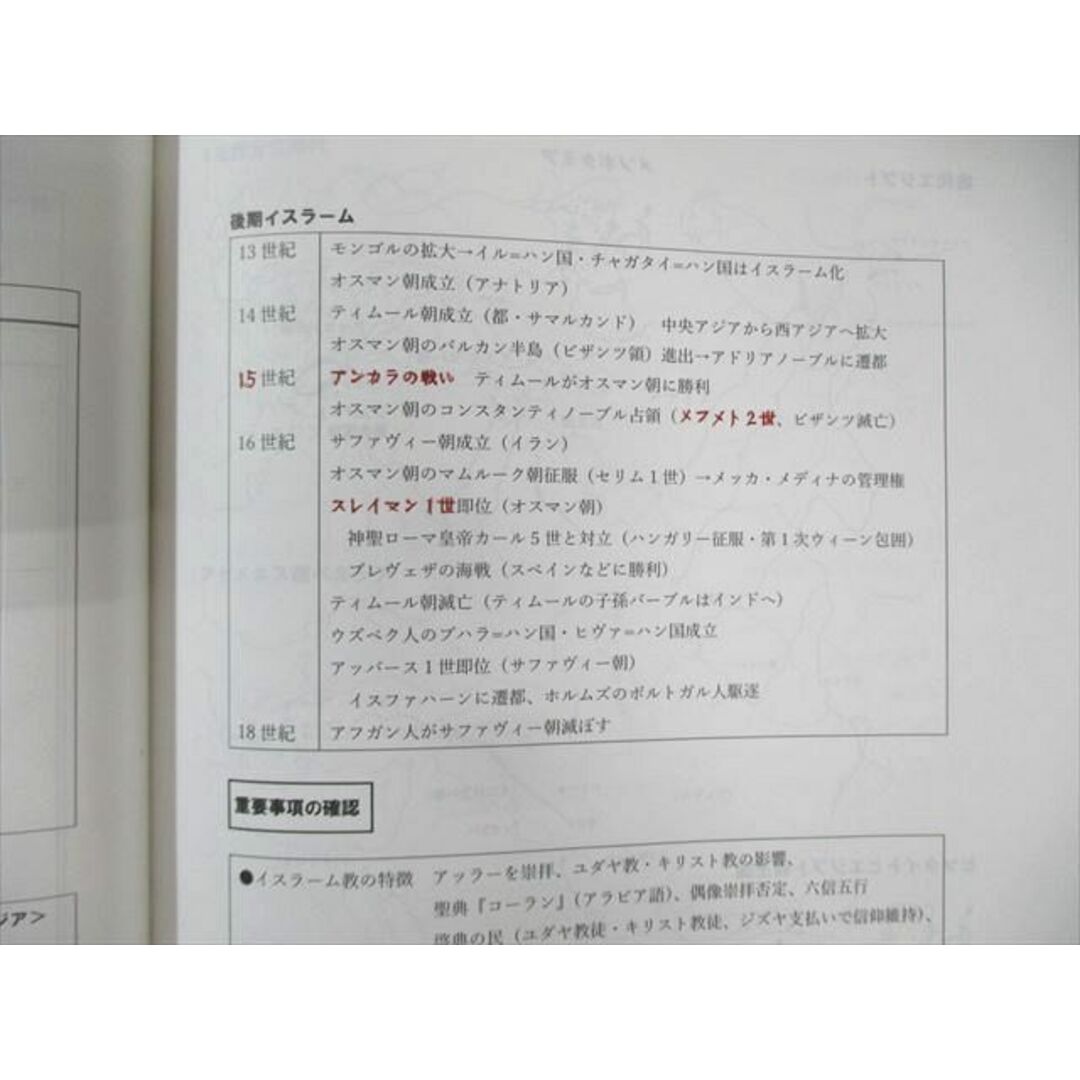 後期イスラーム
13世紀 モンゴルの拡大→イル=ハン国・チャガタイ=ハン国はイスラーム化
オスマン朝成立（アナトリア）
14世紀 ティムール朝成立（都・サマルカンド） 中央アジアから西アジアへ拡大
オスマン朝のバルカン半島（ビザンツ領）進出→アドリアノープルに遷都
15世紀 アンカラの戦い ティムールがオスマン朝に勝利
オスマン朝のコンスタンティノープル占領（メフメト2世、ビザンツ滅亡）
16世紀 サファヴィー朝成立（イラン）
オスマン朝のマムルーク朝征服（セリム1世）→メッカ・メディナの管理権
スレイマン1世即位（オスマン朝）
神聖ローマ皇帝カール5世と対立（ハンガリー征服・第1次ウィーン包囲）
プレヴェザの海戦（スペインなどに勝利）
ティムール朝滅亡（ティムールの子孫バーブルはインドへ）
ウズベク人のブハラ=ハン国・ヒヴァ=ハン国成立
アッバース1世即位（サファヴィー朝）
イスファハーンに遷都、ホルムズのポルトガル人駆逐
18世紀 アフガン人がサファヴィー朝滅ぼす
重要事項の確認
●イスラーム教の特徴 アッラーを崇拝、ユダヤ教・キリスト教の影響、
聖典『コーラン』（アラビア語）、偶像崇拝否定、六信五行
啓典の民（ユダヤ教徒・キリスト教徒、ジズヤ支払いで信仰維持）、
ジア＞